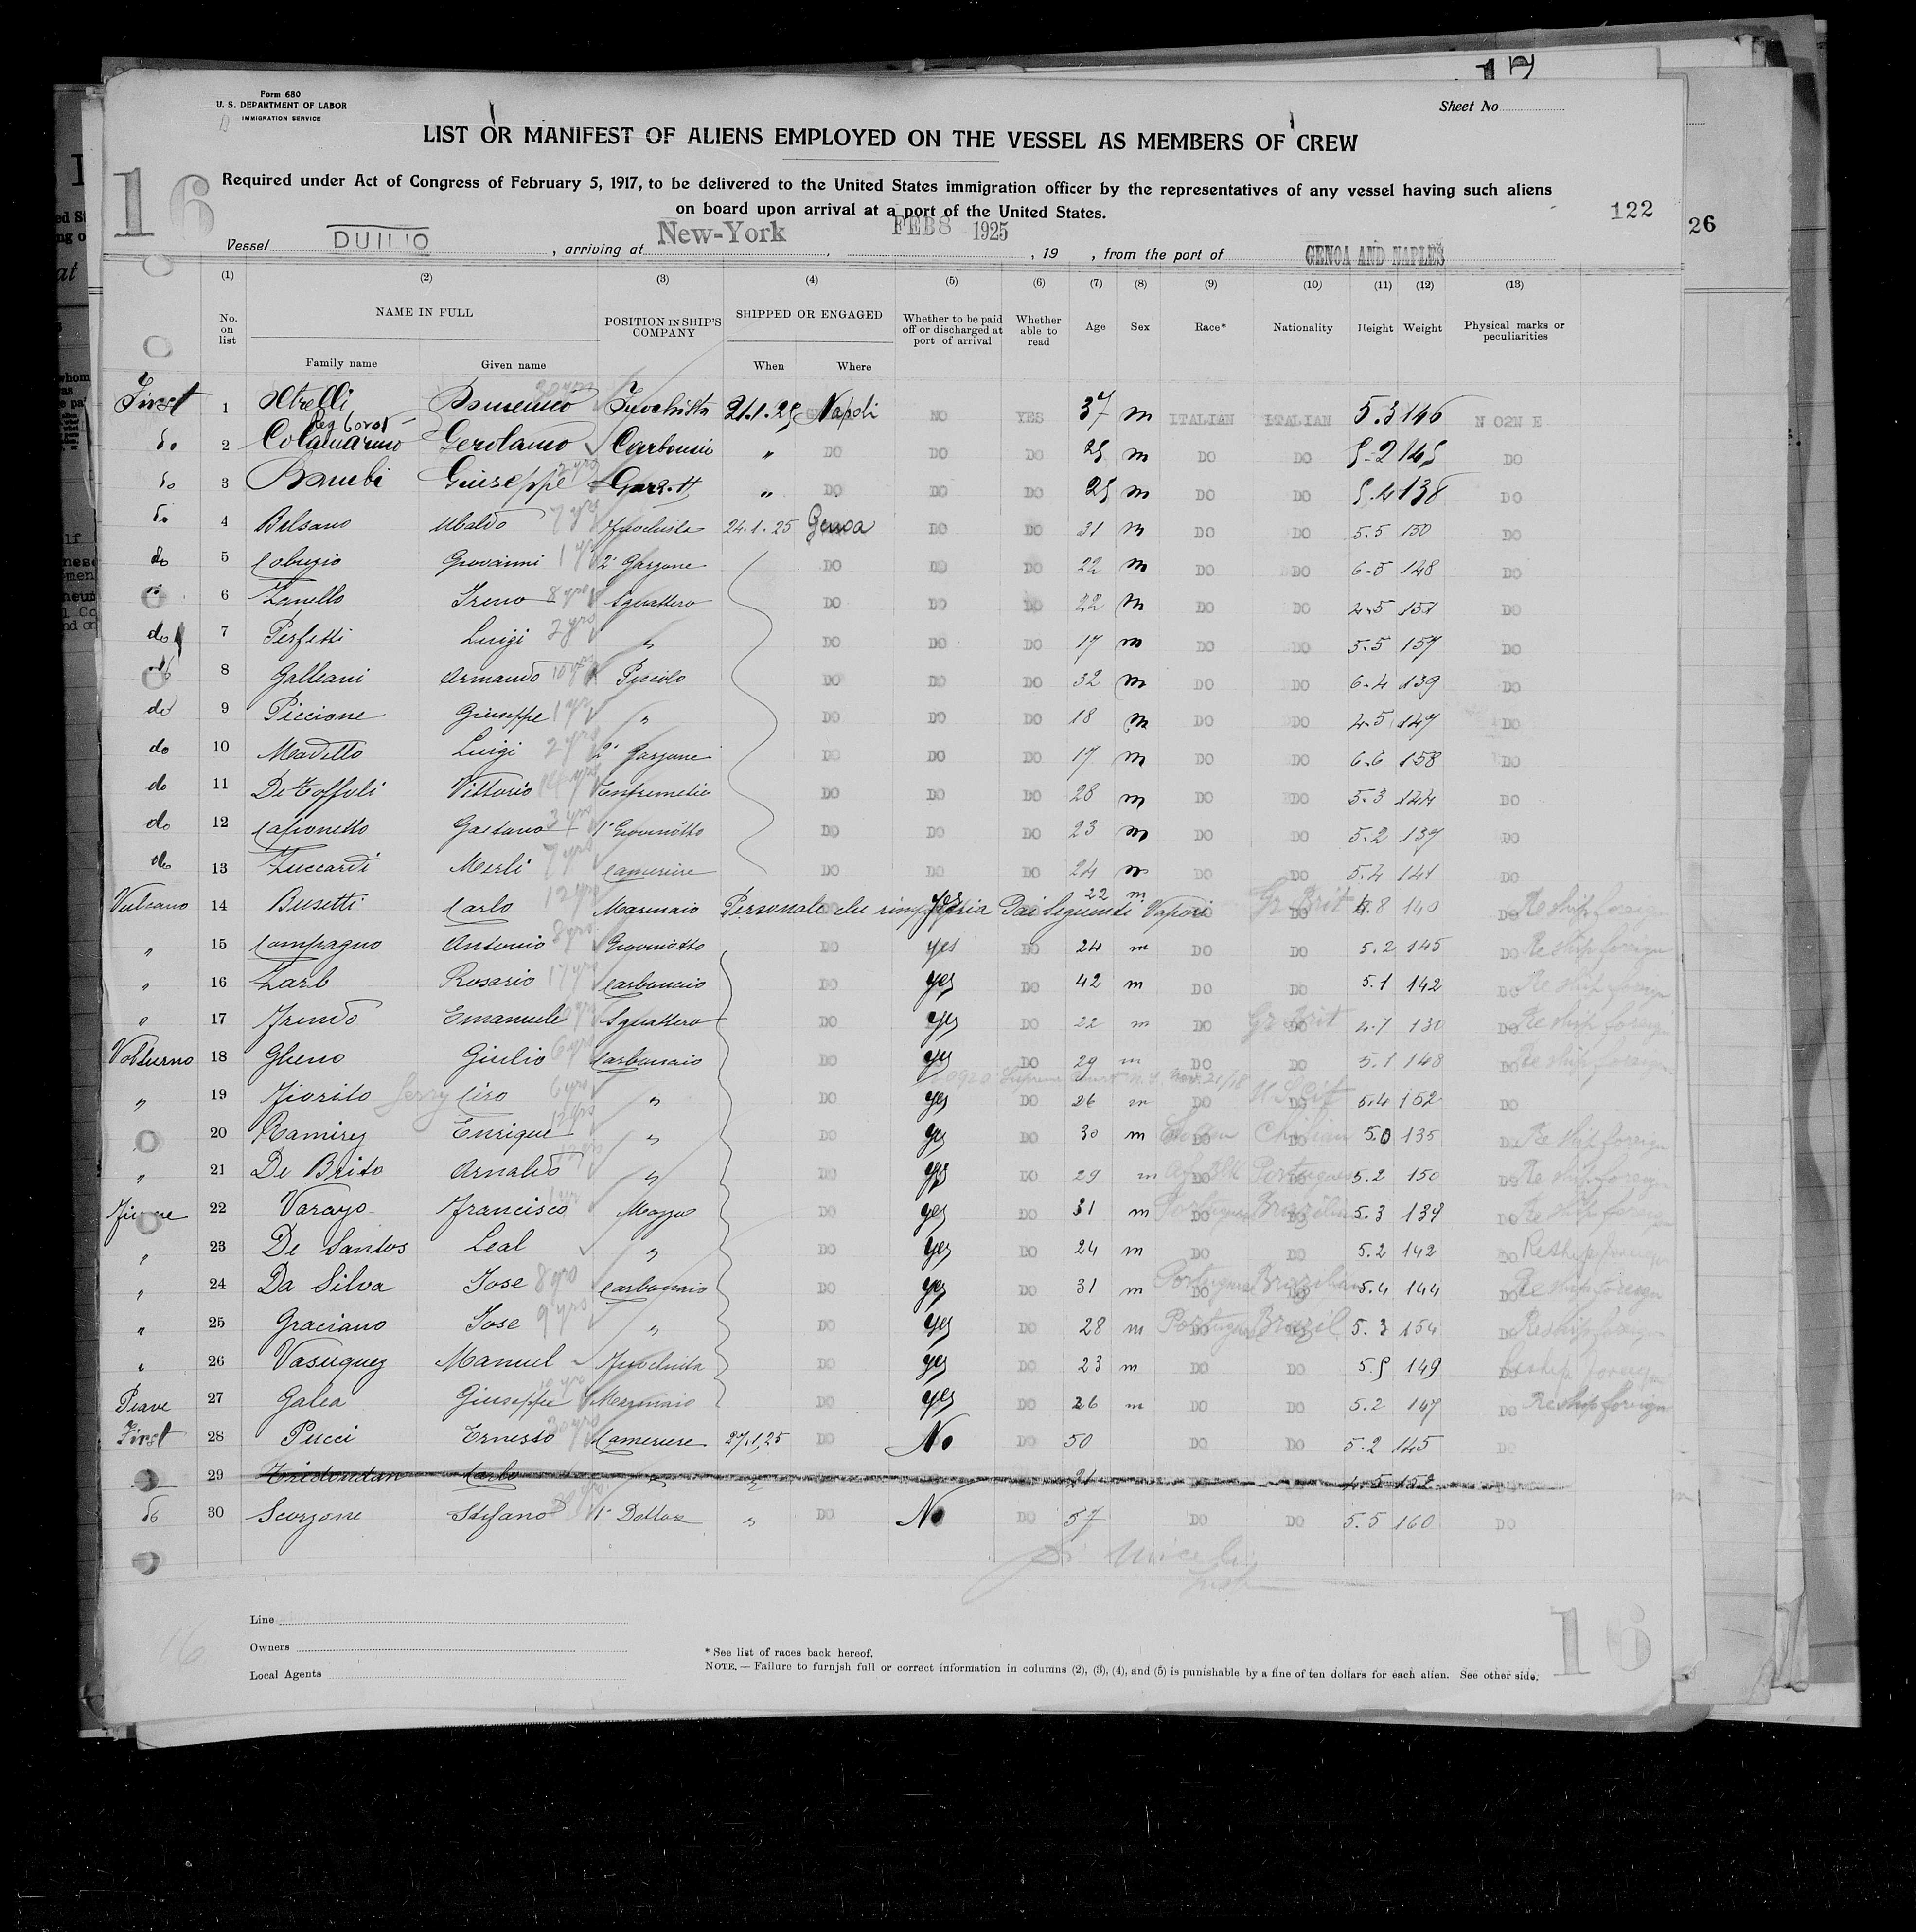 Form 680
U. S. DEPARTMENT OF LABOR
IMMIGRATION SERVICE
Sheet No
LIST OR MANIFEST OF ALIENS EMPLOYED ON THE VESSEL AS MEMBERS OF CREW
Required under Act of Congress of February 5, 1917, to be delivered to the United States immigration officer by the representatives of any vessel having such aliens
on board upon arrival at a port of the United States.
16
122
26
Vessel DUILIO, arriving at New-York, FEB 8 1925, 19 , from the port of GENOA AND NAPLES
(1) (2) (3) (4) (5) (6) (7) (8) (9) (10) (11) (12) (13)
No. on list NAME IN FULL POSITION IN SHIP'S COMPANY SHIPPED OR ENGAGED Whether to be paid off or discharged at port of arrival Whether able to read Age Sex Race* Nationality Height Weight Physical marks or peculiarities
Family name Given name When Where
First 1 Domenico Fuochista 21.1.25 Napoli NO YES 37 m ITALIAN ITALIAN 5.3 146
do 2 Colamarino Gerolamo Carbonaio " DO DO DO 25 m DO DO 5.2 145 DO
do 3 Giuseppe 2 yrs " DO DO DO 25 m DO DO 5.4 138 DO
do 4 Balsano Ubaldo 7 yrs Fuochista 24.1.25 Genoa DO DO 31 m DO DO 5.5 130 DO
do 5 Giovanni 1 yr 2° Garzone DO DO DO 22 m DO DO 6.5 128 DO
6 Zanello Ireno 8 yrs Sguattero DO DO DO 22 m DO DO 4.5 151 DO
do 7 Perfetti Luigi 2 yrs " DO DO DO 17 m DO DO 5.5 157 DO
8 Galleani Armando 10 yrs Piccolo DO DO DO 32 m DO DO 6.4 139 DO
do 9 Piccione Giuseppe 1 yr " DO DO DO 18 m DO DO 4.5 147 DO
do 10 Luigi 2 yrs 2° Garzone DO DO DO 17 m DO DO 6.6 158 DO
do 11 De Toffoli Vittorio DO DO DO 28 m DO DO 5.3 124 DO
do 12 Caponetto Gaetano 3 yrs 1° Giovinotto DO DO DO 23 m DO DO 5.2 139 DO
do 13 Zuccardi Merli 7 yrs Cameriere DO DO DO 24 m DO DO 5.4 141 DO
Vulcano 14 Busetti Carlo 12 yrs Marinaio Personale che rimpatria Dai seguenti Vapori yes 22 m Gr Brit DO 4.8 140 DO Reship foreign
" 15 Compagno Antonio 8 yrs Giovinotto DO yes DO 24 m DO DO 5.2 145 DO Reship foreign
" 16 Zarb Rosario 17 yrs Carbonaio DO yes DO 42 m DO DO 5.1 142 DO Reship foreign
" 17 Emanuele Sguattero DO yes DO 22 m DO Gr Brit DO 4.7 130 DO Reship foreign
Volturno 18 Glieno Giulio 6 yrs Carbonaio DO yes DO 29 m DO DO 5.1 148 DO Reship foreign
Supreme Court N.Y. Nov. 21/18
" 19 Fiorito Ciro 6 yrs " DO yes DO 26 m DO U S Cit DO 5.4 152 DO
20 Ramirez Enrique 12 yrs " DO yes DO 30 m Chilian DO 5.0 135 DO Reship foreign
" 21 De Brito Arnaldo " DO yes DO 29 m Af. Blk DO Portuguese DO 5.2 150 DO Reship foreign
Fiume 22 Varayo Francisco 1 yr Mozzo DO yes DO 31 m Portuguese DO Brazilian DO 5.3 139 DO Reship foreign
" 23 De Santos Leal " DO yes DO 24 m DO DO 5.2 142 DO Reship foreign
" 24 Da Silva Jose 8 yrs Carbonaio DO yes DO 31 m Portuguese DO Brazilian DO 5.4 144 DO Reship foreign
" 25 Graciano Jose 9 yrs " DO yes DO 28 m Portuguese DO Brazil DO 5.3 154 DO Reship foreign
" 26 Vasuquez Manuel Fuochista DO yes DO 23 m DO DO 5.5 149 DO Reship foreign
Piave 27 Galea Giuseppe 10 yrs Marinaio DO yes DO 26 m DO DO 5.2 147 DO Reship foreign
First 28 Pucci Ernesto 30 yrs Cameriere 27.1.25 DO No DO 50 DO DO 5.2 145 DO
29 Carlo " " 21 4.5 152
do 30 Scorzone Stefano 1° Dottore " DO No DO 57 DO DO 5.5 160 DO
Line
Owners
Local Agents
* See list of races back hereof.
NOTE. — Failure to furnish full or correct information in columns (2), (3), (4), and (5) is punishable by a fine of ten dollars for each alien. See other side.
16
16